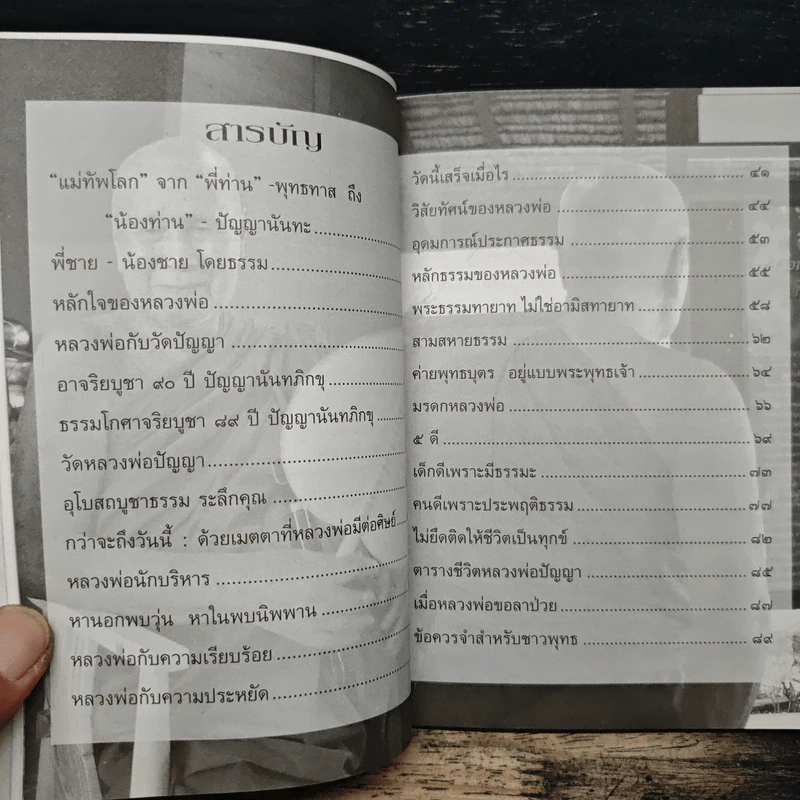 สารบัญ
"แม่ทัพโลก" จาก "พี่ท่าน" -พุทธทาส ถึง
"น้องท่าน" - ปัญญานันทะ
พี่ชาย - น้องชาย โดยธรรม
หลักใจของหลวงพ่อ
หลวงพ่อกับวัดปัญญา
อาจริยบูชา ๙๐ ปี ปัญญานันทภิกขุ
ธรรมโกศาจริยบูชา ๘๙ ปี ปัญญานันทภิกขุ
วัดหลวงพ่อปัญญา
อุโบสถบูชาธรรม ระลึกคุณ
กว่าจะถึงวันนี้ : ด้วยเมตตาที่หลวงพ่อมีต่อศิษย์
หลวงพ่อนักบริหาร
หานอกพบวุ่น หาในพบนิพพาน
หลวงพ่อกับความเรียบร้อย
หลวงพ่อกับความประหยัด
วัดนี้เสร็จเมื่อไร ๔๑
วิสัยทัศน์ของหลวงพ่อ ๔๔
อุดมการณ์ประกาศธรรม ๕๓
หลักธรรมของหลวงพ่อ ๕๕
พระธรรมทายาท ไม่ใช่อามิสทายาท ๕๘
สามสหายธรรม ๖๒
ค่ายพุทธบุตร อยู่แบบพระพุทธเจ้า ๖๔
มรดกหลวงพ่อ ๖๖
๕ ดี ๖๙
เด็กดีเพราะมีธรรมะ ๗๓
คนดีเพราะประพฤติธรรม ๗๗
ไม่ยึดติดให้ชีวิตเป็นทุกข์ ๘๒
ตารางชีวิตหลวงพ่อปัญญา ๘๕
เมื่อหลวงพ่อขอลาป่วย ๘๗
ข้อควรจำสำหรับชาวพุทธ ๘๙